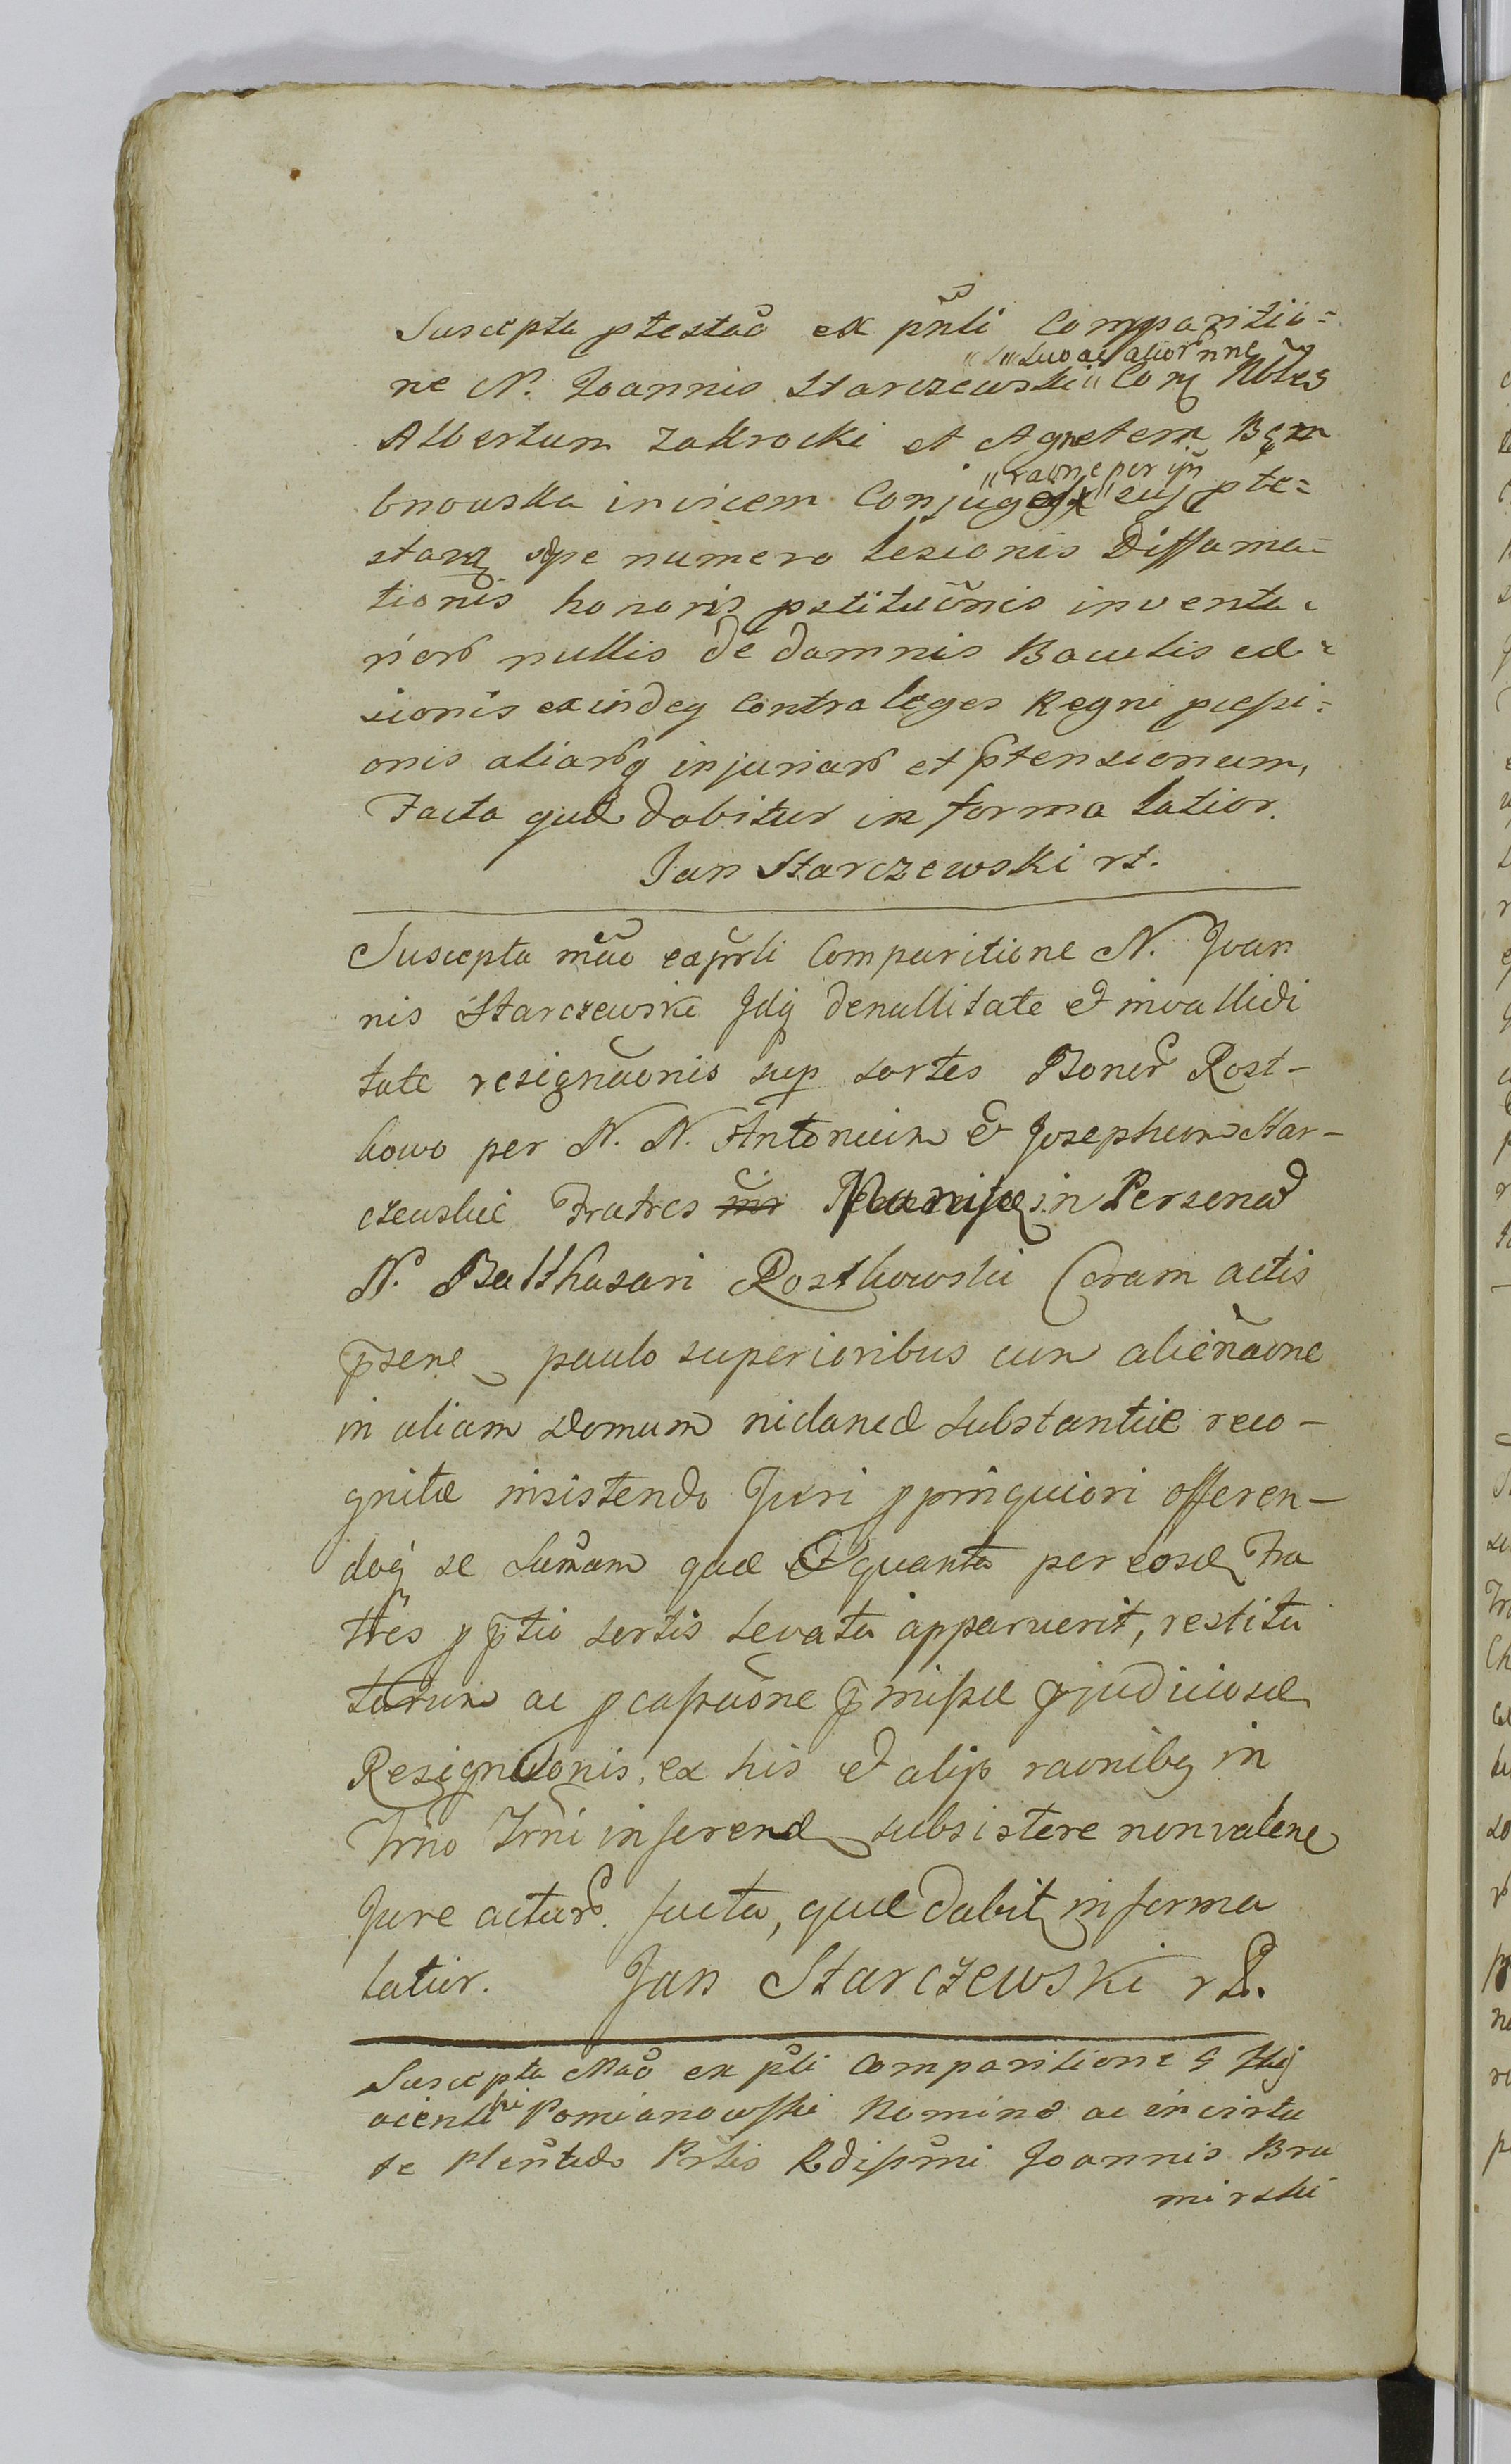 Suscepta ptestão ex pñli Comparitio=
ne N. Joannis Starczewski "suo ac alior nne" Con Nbles
Albertum Zakrocki et Agnetem Bęm
bnowska invicem Conjuges "raone per ipñ" ptе=
stan spe numero lesionis Diffama=
tionis honoris pstituõnis inventa=
rior nullis de damnis Baculis ce=
sionis exindeq Contra leges Regni pcessi=
onis aliarq injuriar et ptensionum,
Facta quæ dabitur in forma latior.
Jan Starczewski rt.
Suscepta mão ex pñli Comparitione N. Joan
nis Starczewski Idq de nullitate et invallidi
tate resignãonis sup sortes Bonor Rost-
kowo per N. N. Antonium et Josephum Star-
czewskie Fratres in Persona
N. Balthasari Rostkowski Coram actis
psen paulo superioribus cum alienãone
in aliam Domum nidaneæ substantiæ reco-
gnitæ insistendo Juri ppinquiori offeren-
doq se Sumam quæ et quanta per eosd Fra
tres p ptio sortis levata apparuerit, restitu
turum ac p cassaõne pmissæ pjudiciosæ
Resignãonis, ex his et alijs raonibq in
Trno Trni inferend subsistere non valene
Jure actur. facta, quæ dabit in forma
latior. Jan Starczewski rt.
Suscepta Mão ex pñli Comparitione G Hij
acenthi Pomianowski Nomine ac in virtu
te Plentndo Prtis Rdissmi Joannis Bra
mirski